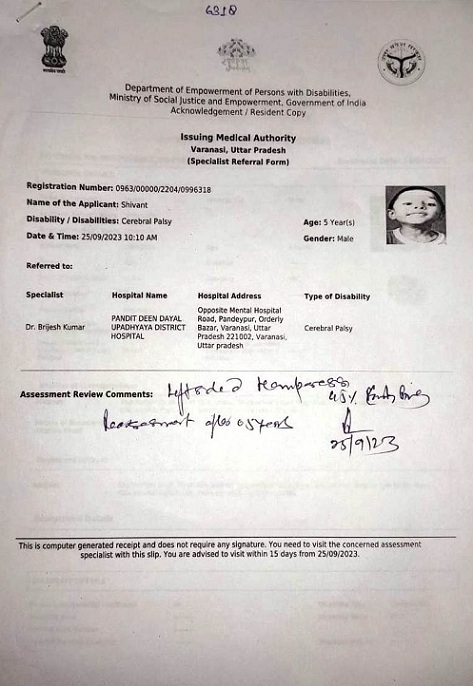 6318
Department of Empowerment of Persons with Disabilities,
Ministry of Social Justice and Empowerment, Government of India
Acknowledgement / Resident Copy
Issuing Medical Authority
Varanasi, Uttar Pradesh
(Specialist Referral Form)
Registration Number: 0963/00000/2204/0996318
Name of the Applicant: Shivant
Disability / Disabilities: Cerebral Palsy
Age: 5 Year(s)
Date & Time: 25/09/2023 10:10 AM
Gender: Male
Referred to:
Specialist Hospital Name Hospital Address Type of Disability
Dr. Brijesh Kumar
PANDIT DEEN DAYAL
UPADHYAYA DISTRICT
HOSPITAL
Opposite Mental Hospital
Road, Pandeypur, Orderly
Bazar, Varanasi, Uttar
Pradesh 221002, Varanasi,
Uttar pradesh
Cerebral Palsy
Assessment Review Comments: Left sided hemiparesis
45%
Reassessment after 05 years
25/9/23
This is computer generated receipt and does not require any signature. You need to visit the concerned assessment
specialist with this slip. You are advised to visit within 15 days from 25/09/2023.